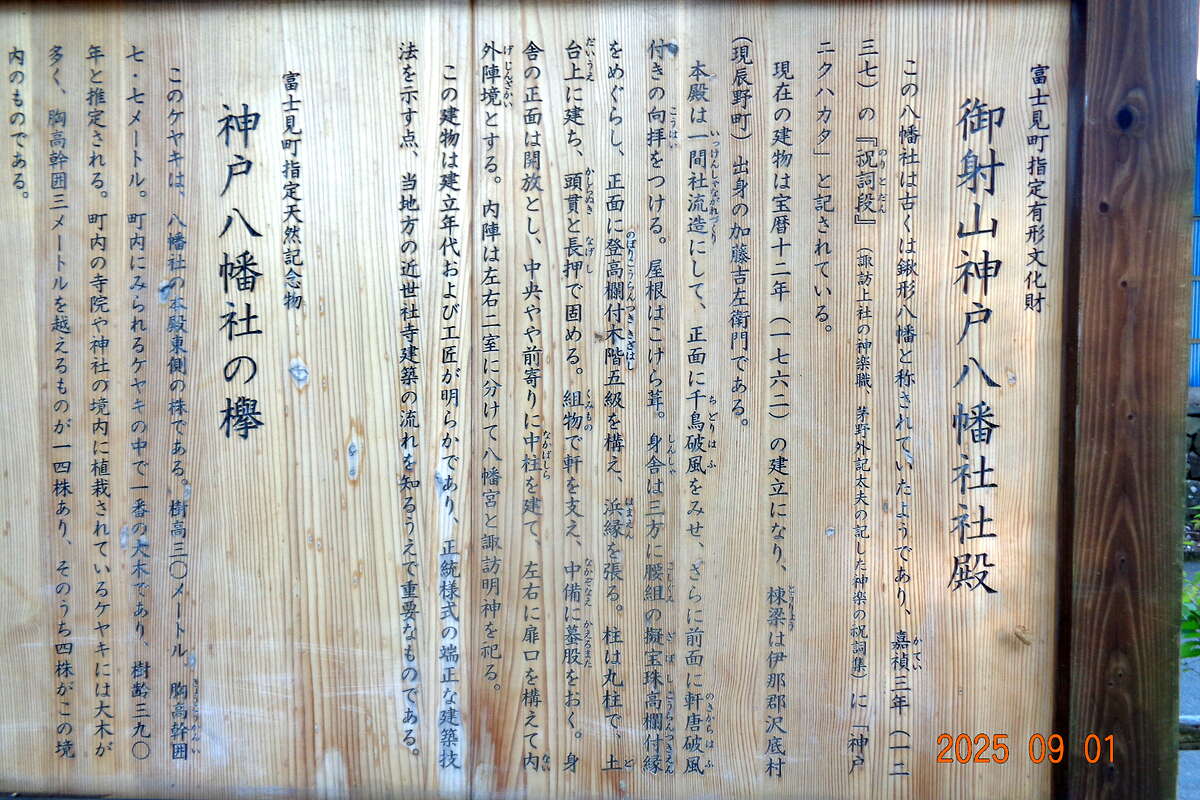 富士見町指定有形文化財
御射山神戸八幡社社殿
この八幡社は古くは鍬形八幡と称されていたようであり、嘉禎三年（一二
三七）の『祝詞段』（諏訪上社の神楽職、茅野外記太夫の記した神楽の祝詞集）に「神戸
ニクハカタ」と記されている。
現在の建物は宝暦十二年（一七六二）の建立になり、棟梁は伊那郡沢底村
（現辰野町）出身の加藤吉左衛門である。
本殿は一間社流造にして、正面に千鳥破風をみせ、さらに前面に軒唐破風
付きの向拝をつける。屋根はこけら葺。身舎は三方に腰組の擬宝珠高欄付縁
をめぐらし、正面に登高欄付木階五級を構え、浜縁を張る。柱は丸柱で、土
台上に建ち、頭貫と長押で固める。組物で軒を支え、中備に蟇股をおく。身
舎の正面は開放とし、中央やや前寄りに中柱を建て、左右に扉口を構えて内
外陣境とする。内陣は左右二室に分けて八幡宮と諏訪明神を祀る。
この建物は建立年代および工匠が明らかであり、正統様式の端正な建築技
法を示す点、当地方の近世社寺建築の流れを知るうえで重要なものである。
富士見町指定天然記念物
神戸八幡社の欅
このケヤキは、八幡社の本殿東側の株である。樹高三〇メートル、胸高幹囲
七・七メートル。町内にみられるケヤキの中で一番の大木であり、樹齢三九〇
年と推定される。町内の寺院や神社の境内に植栽されているケヤキには大木が
多く、胸高幹囲三メートルを越えるものが一四株あり、そのうち四株がこの境
内のものである。
2025 09 01